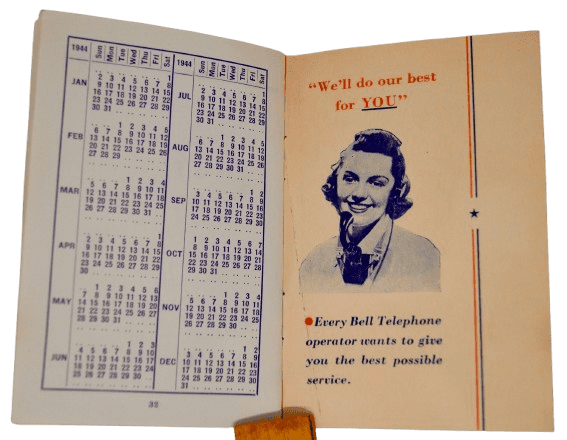 1944 Sun Mon Tue Wed Thu Fri Sat
JAN
1
2 3 4 5 6 7 8
9 10 11 12 13 14 15
16 17 18 19 20 21 22
23 24 25 26 27 28 29
30 31
FEB
1 2 3 4 5
6 7 8 9 10 11 12
13 14 15 16 17 18 19
20 21 22 23 24 25 26
27 28 29
MAR
1 2 3 4
5 6 7 8 9 10 11
12 13 14 15 16 17 18
19 20 21 22 23 24 25
26 27 28 29 30 31
APR
1
2 3 4 5 6 7 8
9 10 11 12 13 14 15
16 17 18 19 20 21 22
23 24 25 26 27 28 29
30
MAY
1 2 3 4 5 6
7 8 9 10 11 12 13
14 15 16 17 18 19 20
21 22 23 24 25 26 27
28 29 30 31
JUN
1 2 3
4 5 6 7 8 9 10
11 12 13 14 15 16 17
18 19 20 21 22 23 24
25 26 27 28 29 30
1944 Sun Mon Tue Wed Thu Fri Sat
JUL
1
2 3 4 5 6 7 8
9 10 11 12 13 14 15
16 17 18 19 20 21 22
23 24 25 26 27 28 29
30 31
AUG
1 2 3 4 5
6 7 8 9 10 11 12
13 14 15 16 17 18 19
20 21 22 23 24 25 26
27 28 29 30 31
SEP
1 2
3 4 5 6 7 8 9
10 11 12 13 14 15 16
17 18 19 20 21 22 23
24 25 26 27 28 29 30
OCT
1 2 3 4 5 6 7
8 9 10 11 12 13 14
15 16 17 18 19 20 21
22 23 24 25 26 27 28
29 30 31
NOV
1 2 3 4
5 6 7 8 9 10 11
12 13 14 15 16 17 18
19 20 21 22 23 24 25
26 27 28 29 30
DEC
1 2
3 4 5 6 7 8 9
10 11 12 13 14 15 16
17 18 19 20 21 22 23
24 25 26 27 28 29 30
31
35
"We'll do our best
for YOU"
Every Bell Telephone
operator wants to give
you the best possible
service.